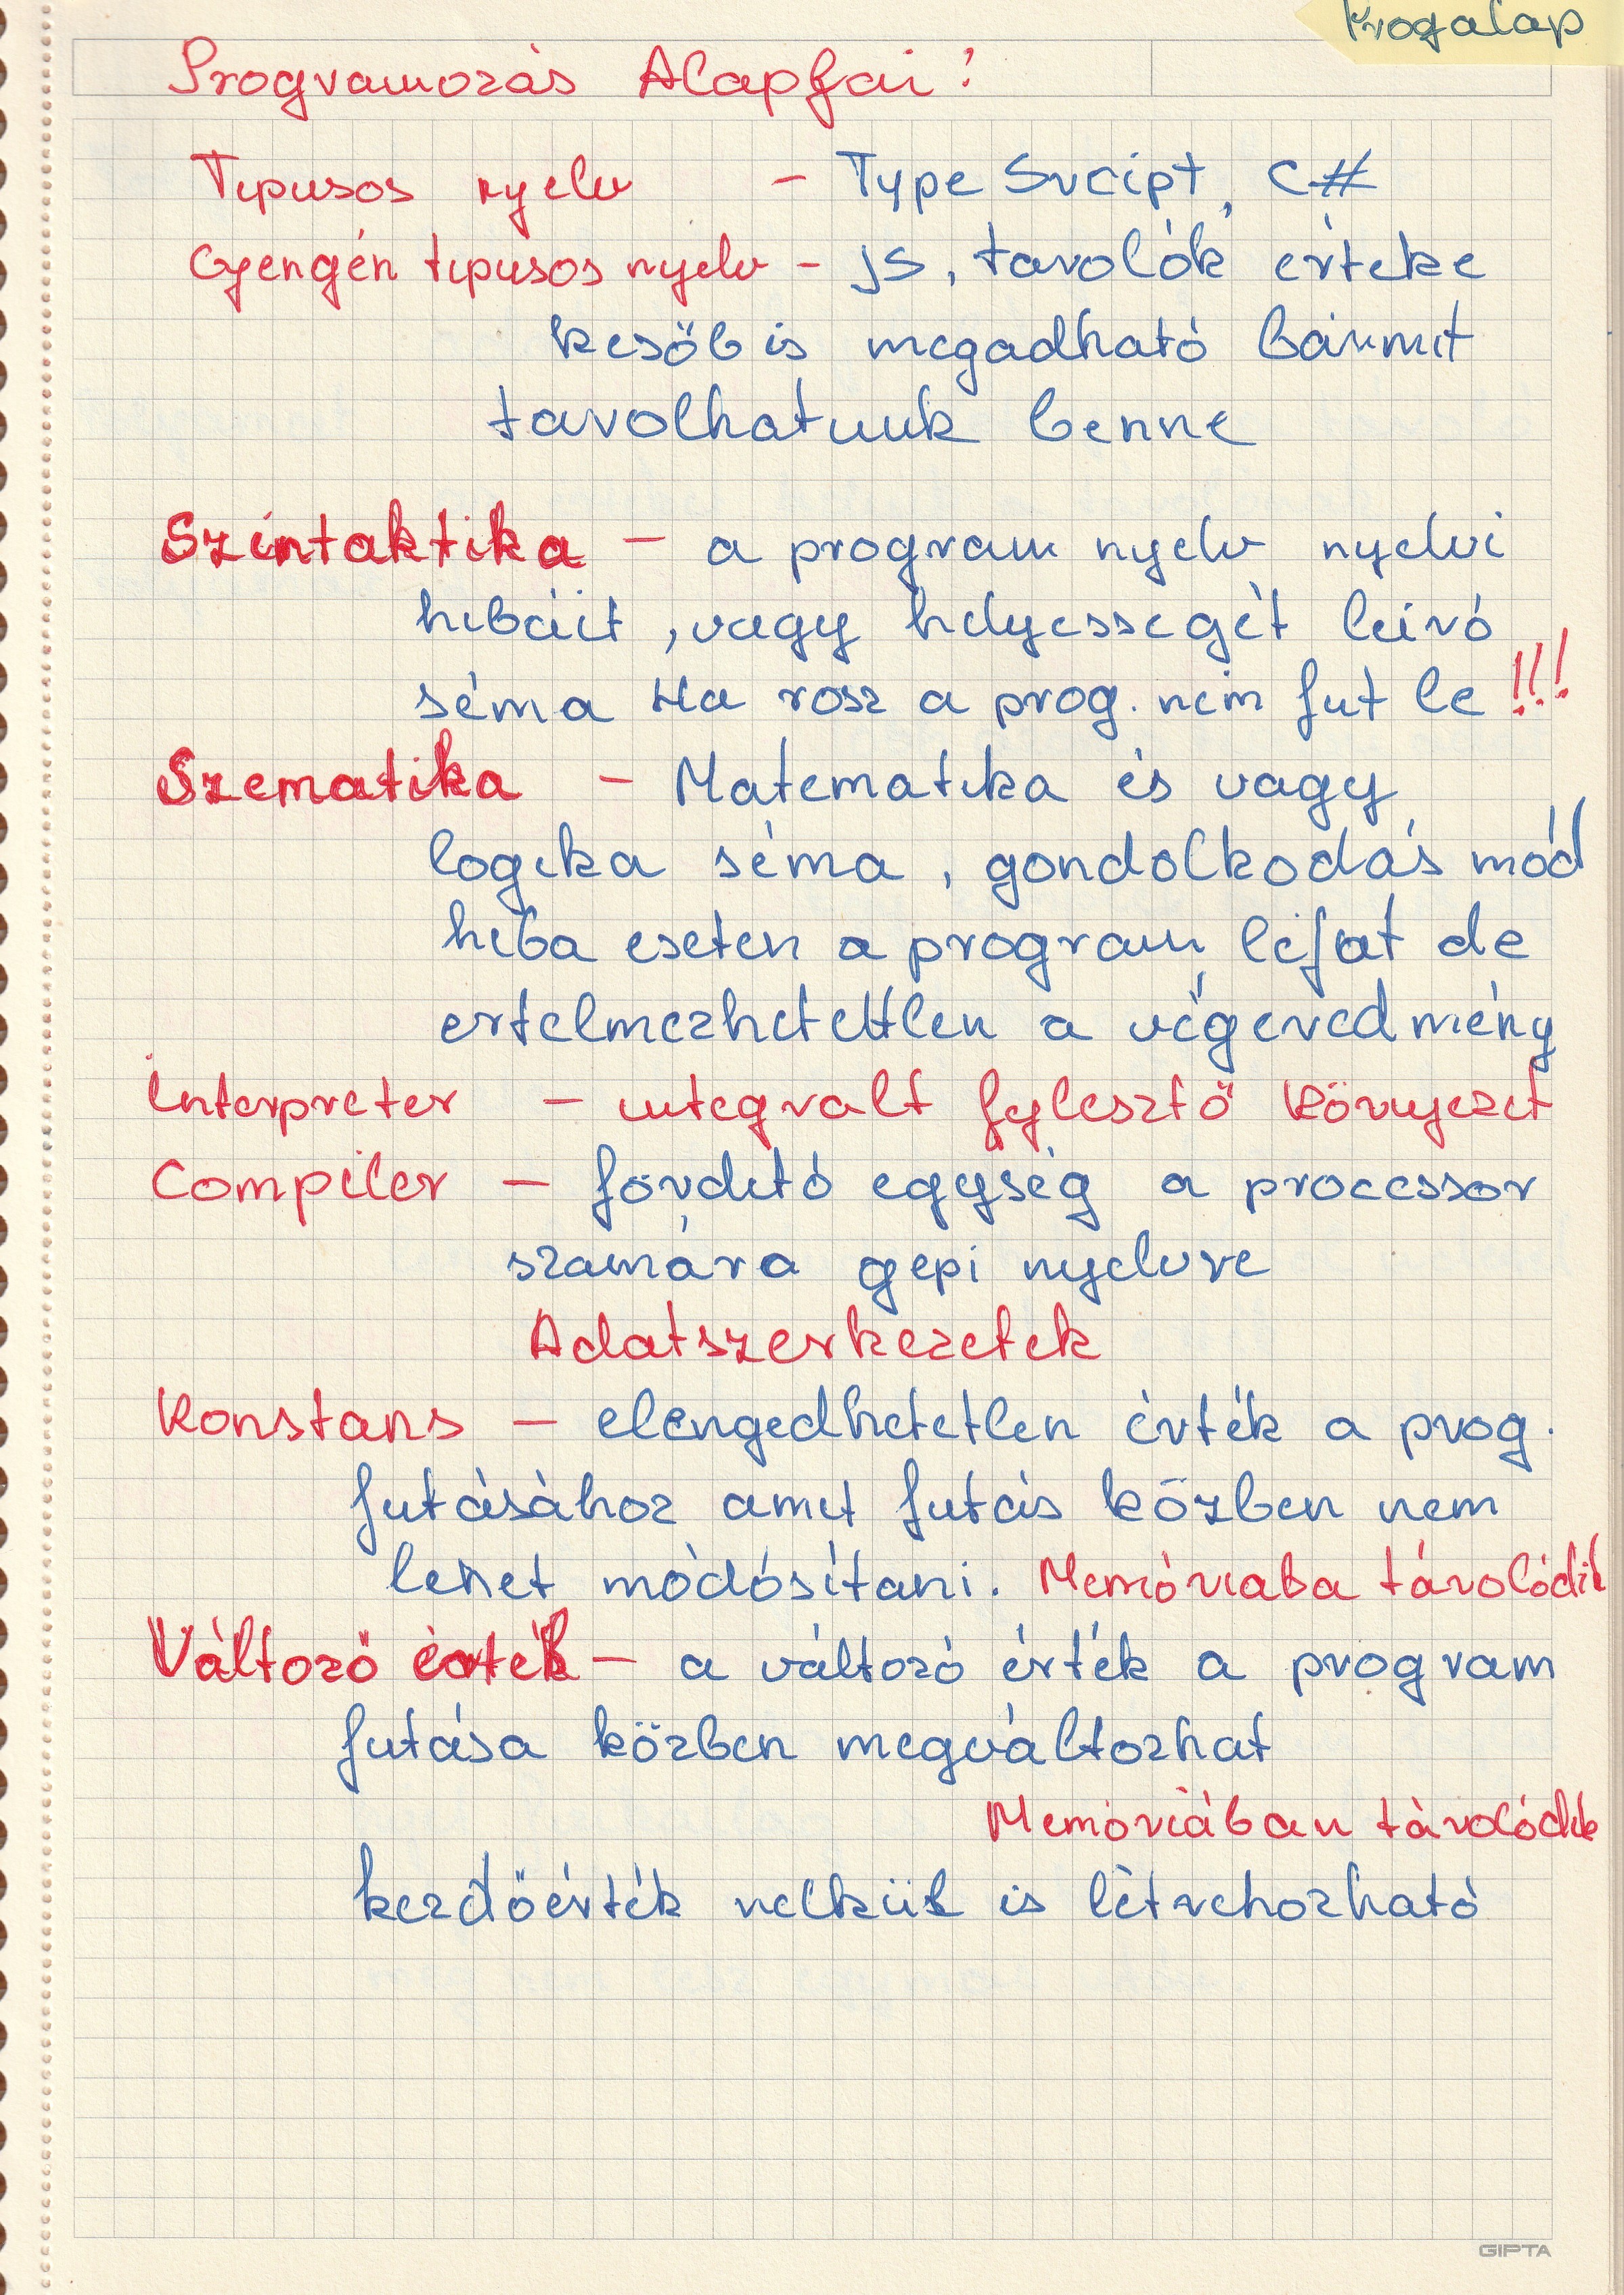 Progalap
Programozás Alapjai:
Tipusos nyelv - Type Srcipt, C#
Gyengén tipusos nyelv - JS, tárolók érteke
kesőb is megadható bármit
tarolhatunk benne
Szintaktika - a program nyelv nyelvi
hibáit, vagy helyességét leiró
séma Ha rosz a prog. nem fut le !!!
Szematika - Matematika és vagy
logika séma, gondolkodás mód
hiba eseten a program lefut de
ertelmezhetettlen a végeredmény
Interpreter - integralt fejlesztő környezet
Compiler - fórditó egység a processor
számára gepi nyelvre
Adatszerkezetek
Konstans - elengedhetetlen érték a prog.
futásához amit futás közben nem
lehet módósítani. Memóriaba tárolódik
Változó érték - a változó érték a program
futása közben megváltozhat
Memóriában tárolódik
kezdőérték nelkül is létrehozható
GIPTA